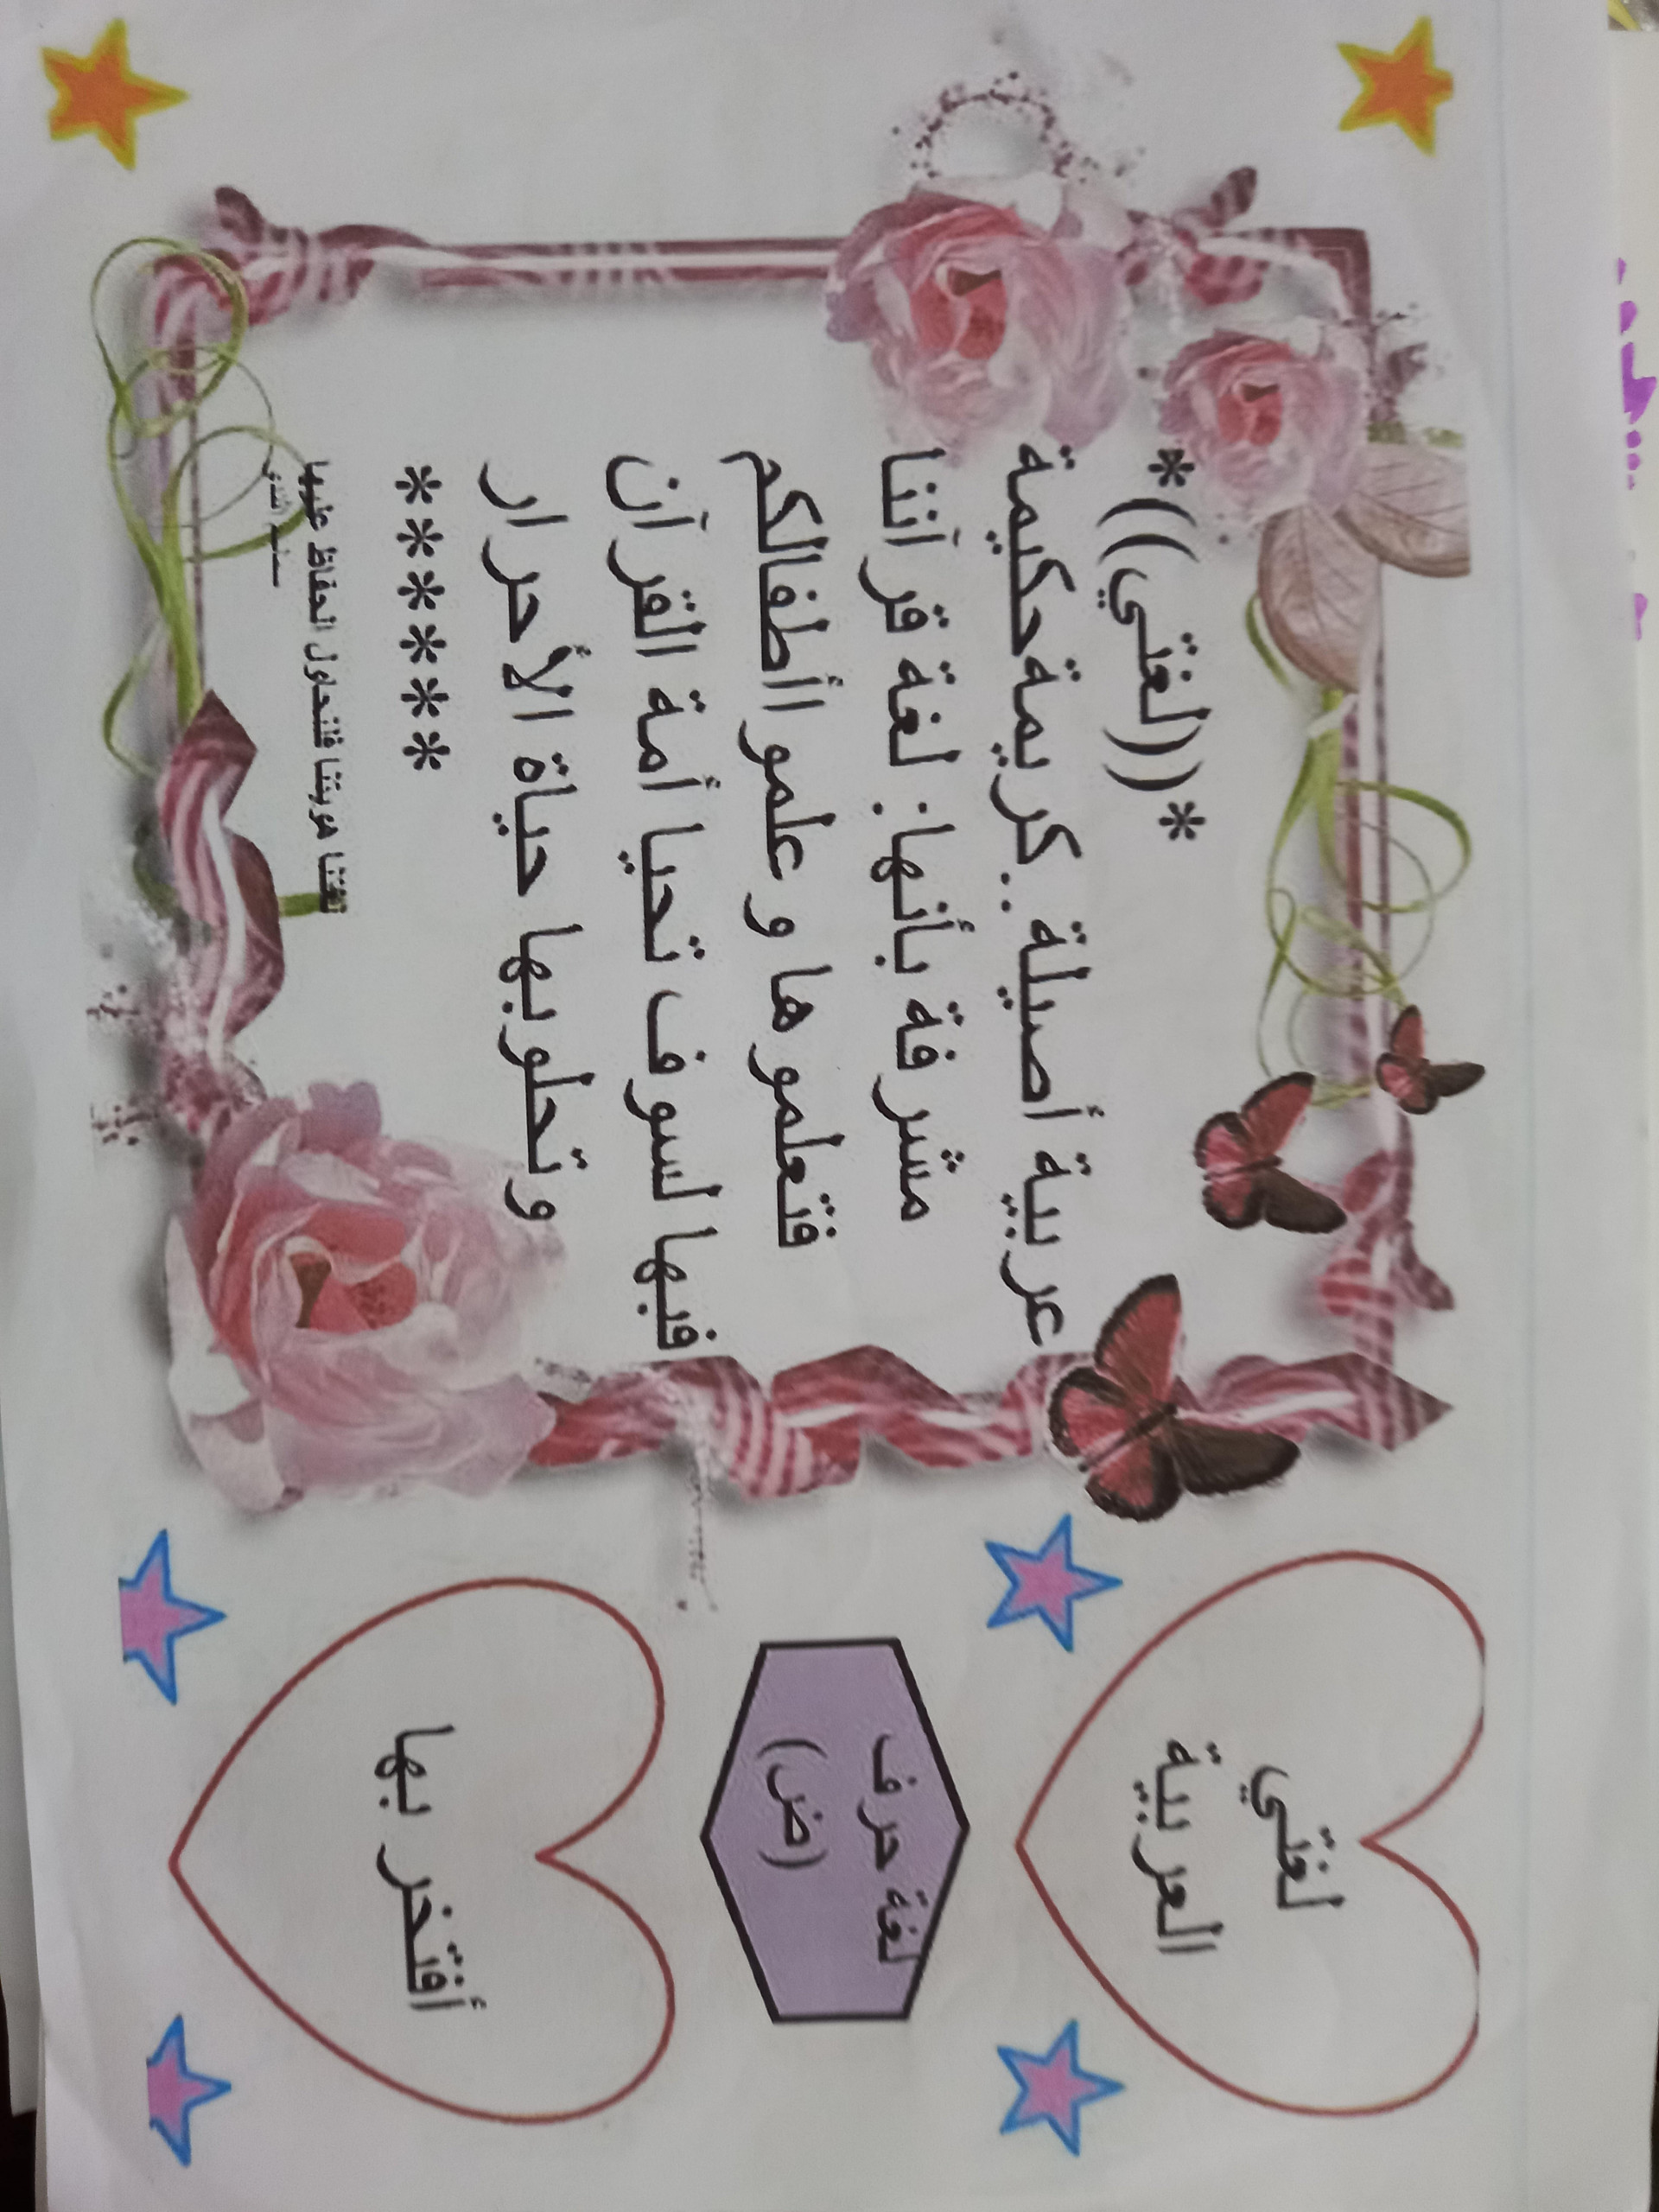 لغتي
العربية
لغة حرف
(ض)
أفتخر بها
*((لغتي))*
عربية أصيلة..كريمة حكيمة
مشرفة بأنها: لغة قرآننا
فتعلموها و علموا أطفالكم
فبها لسوف تحيا أمة القرآن
وتحلو بها حياة الأحرار
******
لغتنا هويتنا فلنحاول الحفاظ عليها